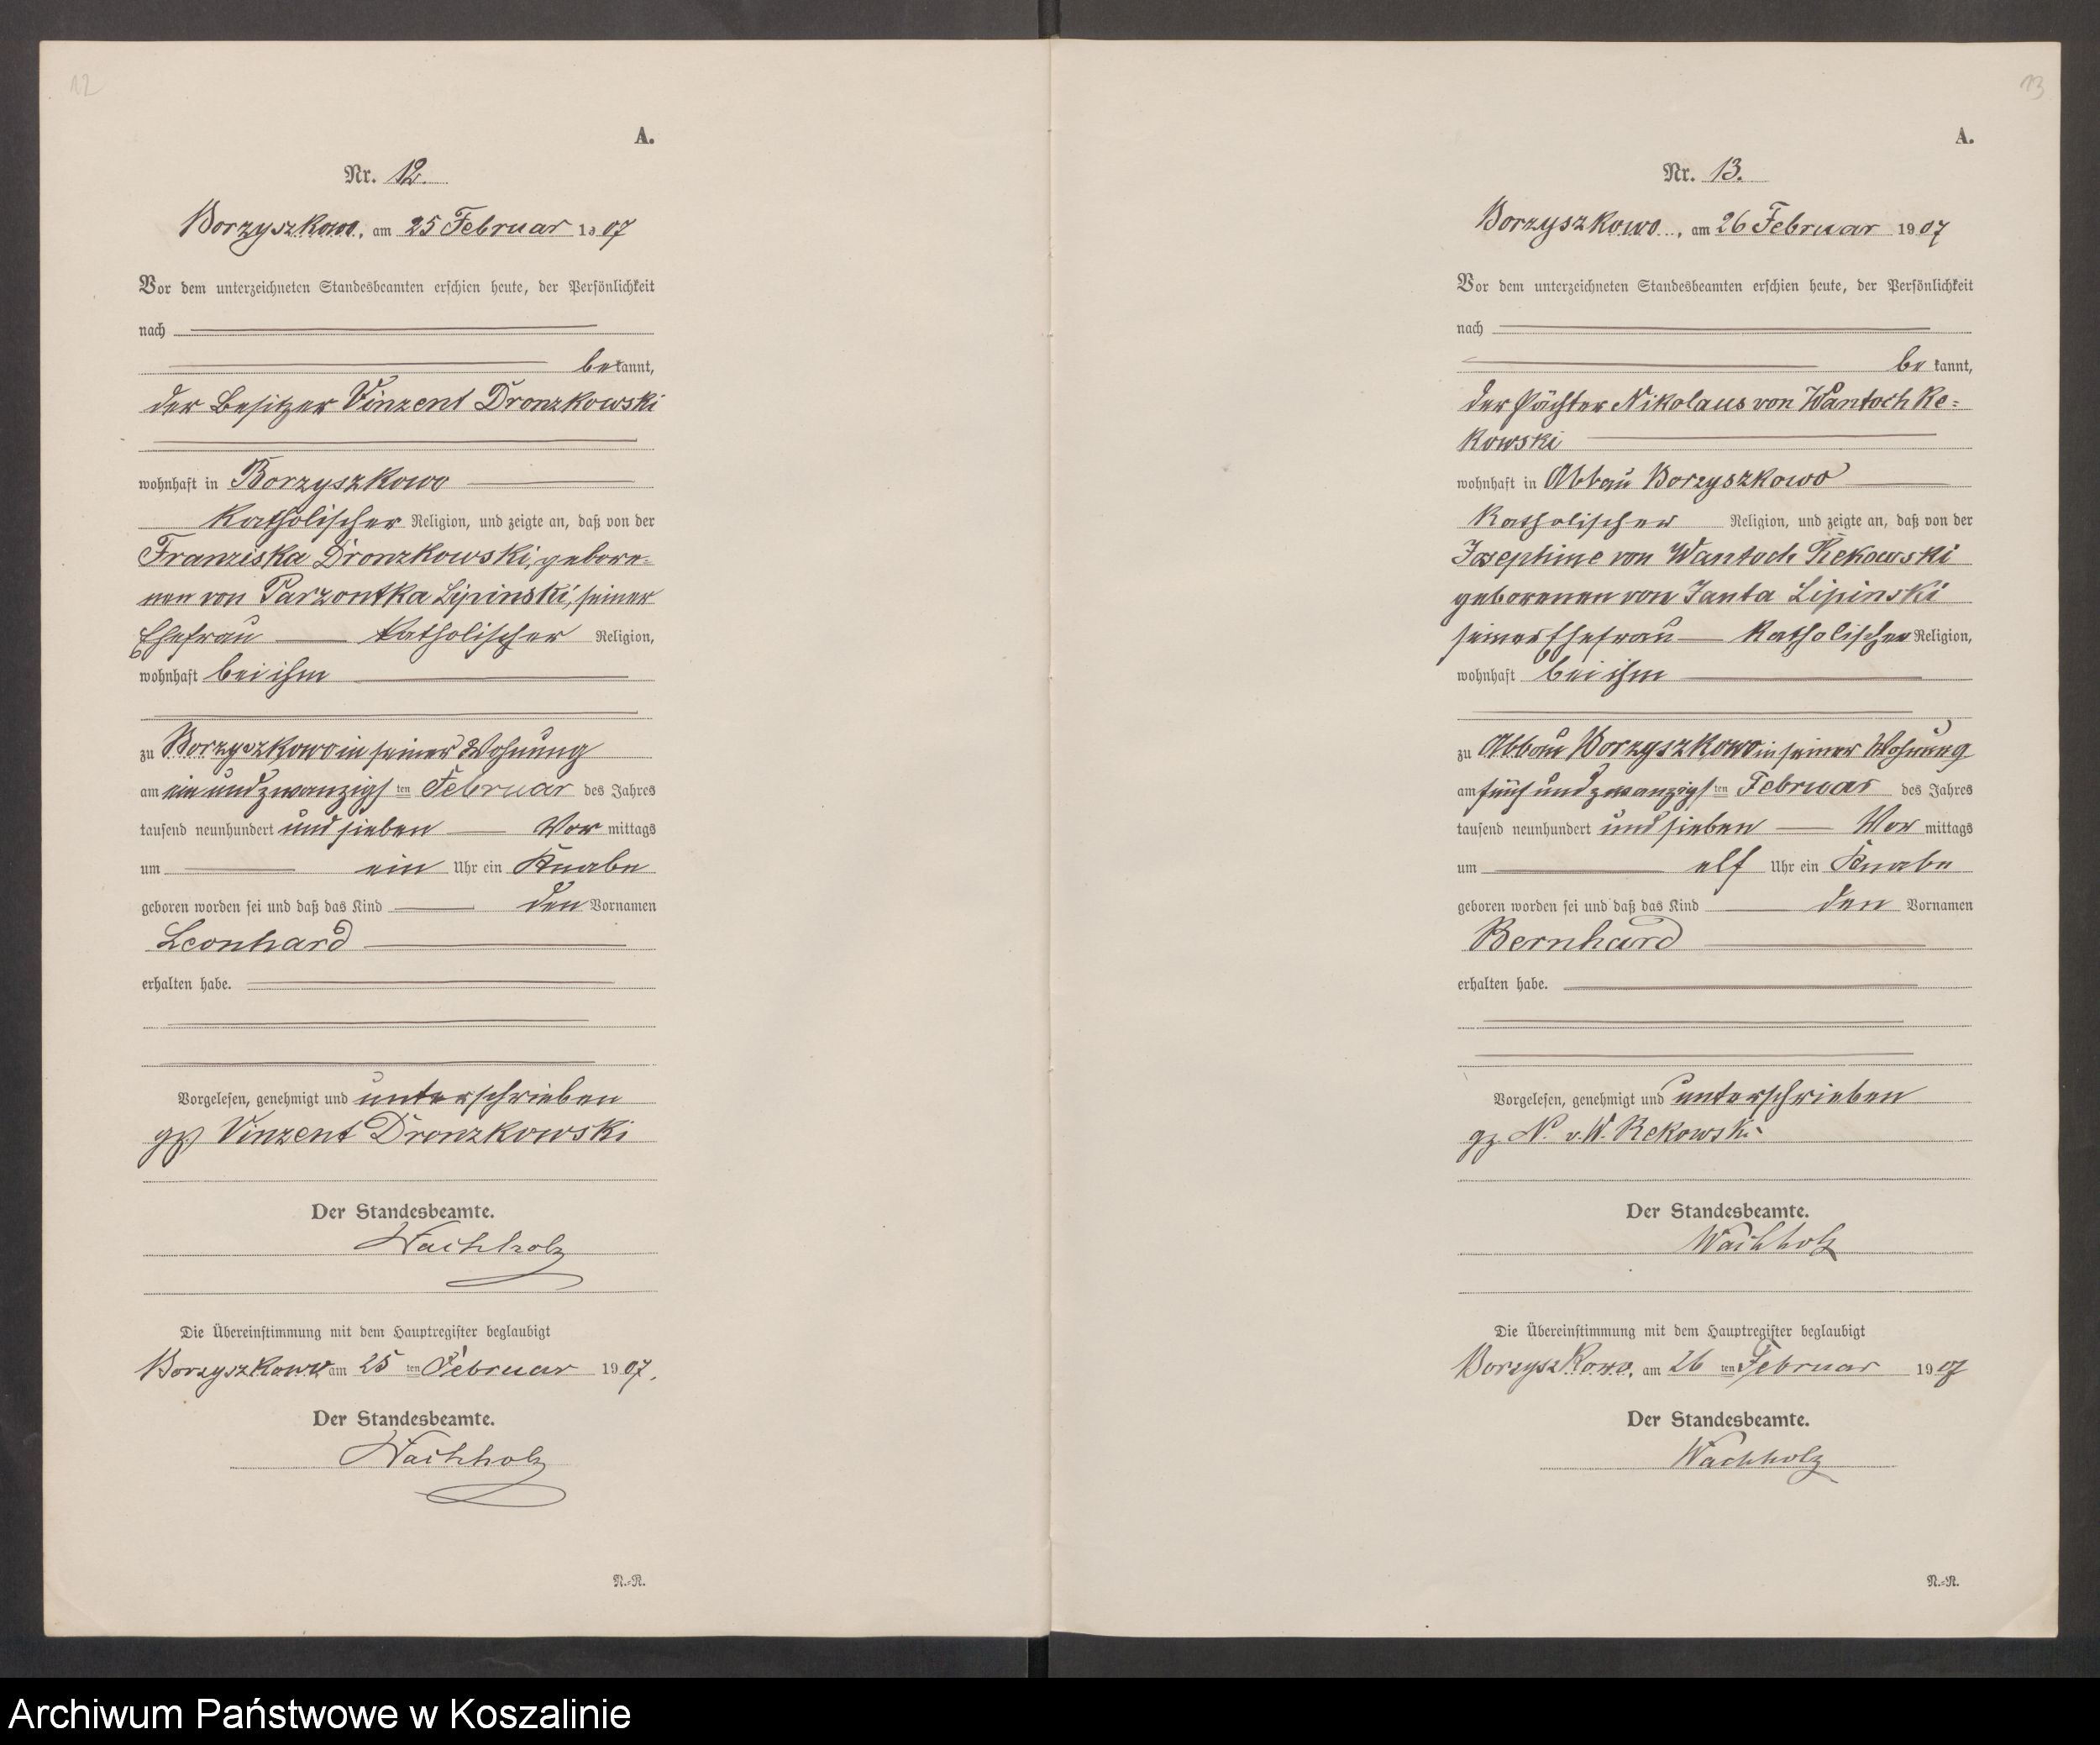 12
A.
Nr. 12.
Borzyszkowo, am 25 Februar 1907
Vor dem unterzeichneten Standesbeamten erschien heute, der Persönlichkeit
nach
bekannt,
der Besitzer Vinzent Dronzkowski
wohnhaft in Borzyszkowo
Katholischer Religion, und zeigte an, daß von der
Franziska Dronzkowski, gebore=
nen von Parzontka Lipinski, seiner
Ehefrau katholischer Religion,
wohnhaft bei ihm
zu Borzyszkowo in seiner Wohnung
am ein und zwanzigsten Februar des Jahres
tausend neunhundert und sieben Vormittags
um ein Uhr ein Knabe
geboren worden sei und daß das Kind den Vornamen
Leonhard
erhalten habe.
Vorgelesen, genehmigt und unterschrieben
gz) Vinzent Dronzkowski
Der Standesbeamte.
Wachholz
Die Übereinstimmung mit dem Hauptregister beglaubigt
Borzyszkowo am 25 ten Februar 1907.
Der Standesbeamte.
Wachholz
N.=R.
13
A.
Nr. 13.
Borzyszkowo, am 26 Februar 1907
Vor dem unterzeichneten Standesbeamten erschien heute, der Persönlichkeit
nach
bekannt,
der Pächter Nikolaus von Wantoch Re=
kowski
wohnhaft in Abbau Borzyszkowo
Katholischer Religion, und zeigte an, daß von der
Josephine von Wantoch Rekowski
geborenen von Janta Lipinski
seiner Ehefrau Katholischer Religion,
wohnhaft bei ihm
zu Abbau Borzyszkowo in seiner Wohnung
am fünf und zwanzigsten Februar des Jahres
tausend neunhundert und sieben Vormittags
um elf Uhr ein Knabe
geboren worden sei und daß das Kind den Vornamen
Bernhard
erhalten habe.
Vorgelesen, genehmigt und unterschrieben
gz. N. v. W. Rekowski
Der Standesbeamte.
Wachholz
Die Übereinstimmung mit dem Hauptregister beglaubigt
Borzyszkowo, am 26 ten Februar 1907
Der Standesbeamte.
Wachholz
N.=R.
Archiwum Państwowe w Koszalinie